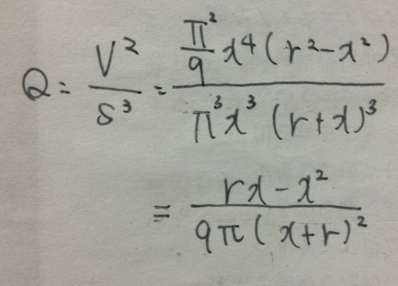 Q = V²/S³ = (π²/9 x⁴(r²-x²))/(π³x³(r+x)³)
= (rx-x²)/(9π(x+r)²)